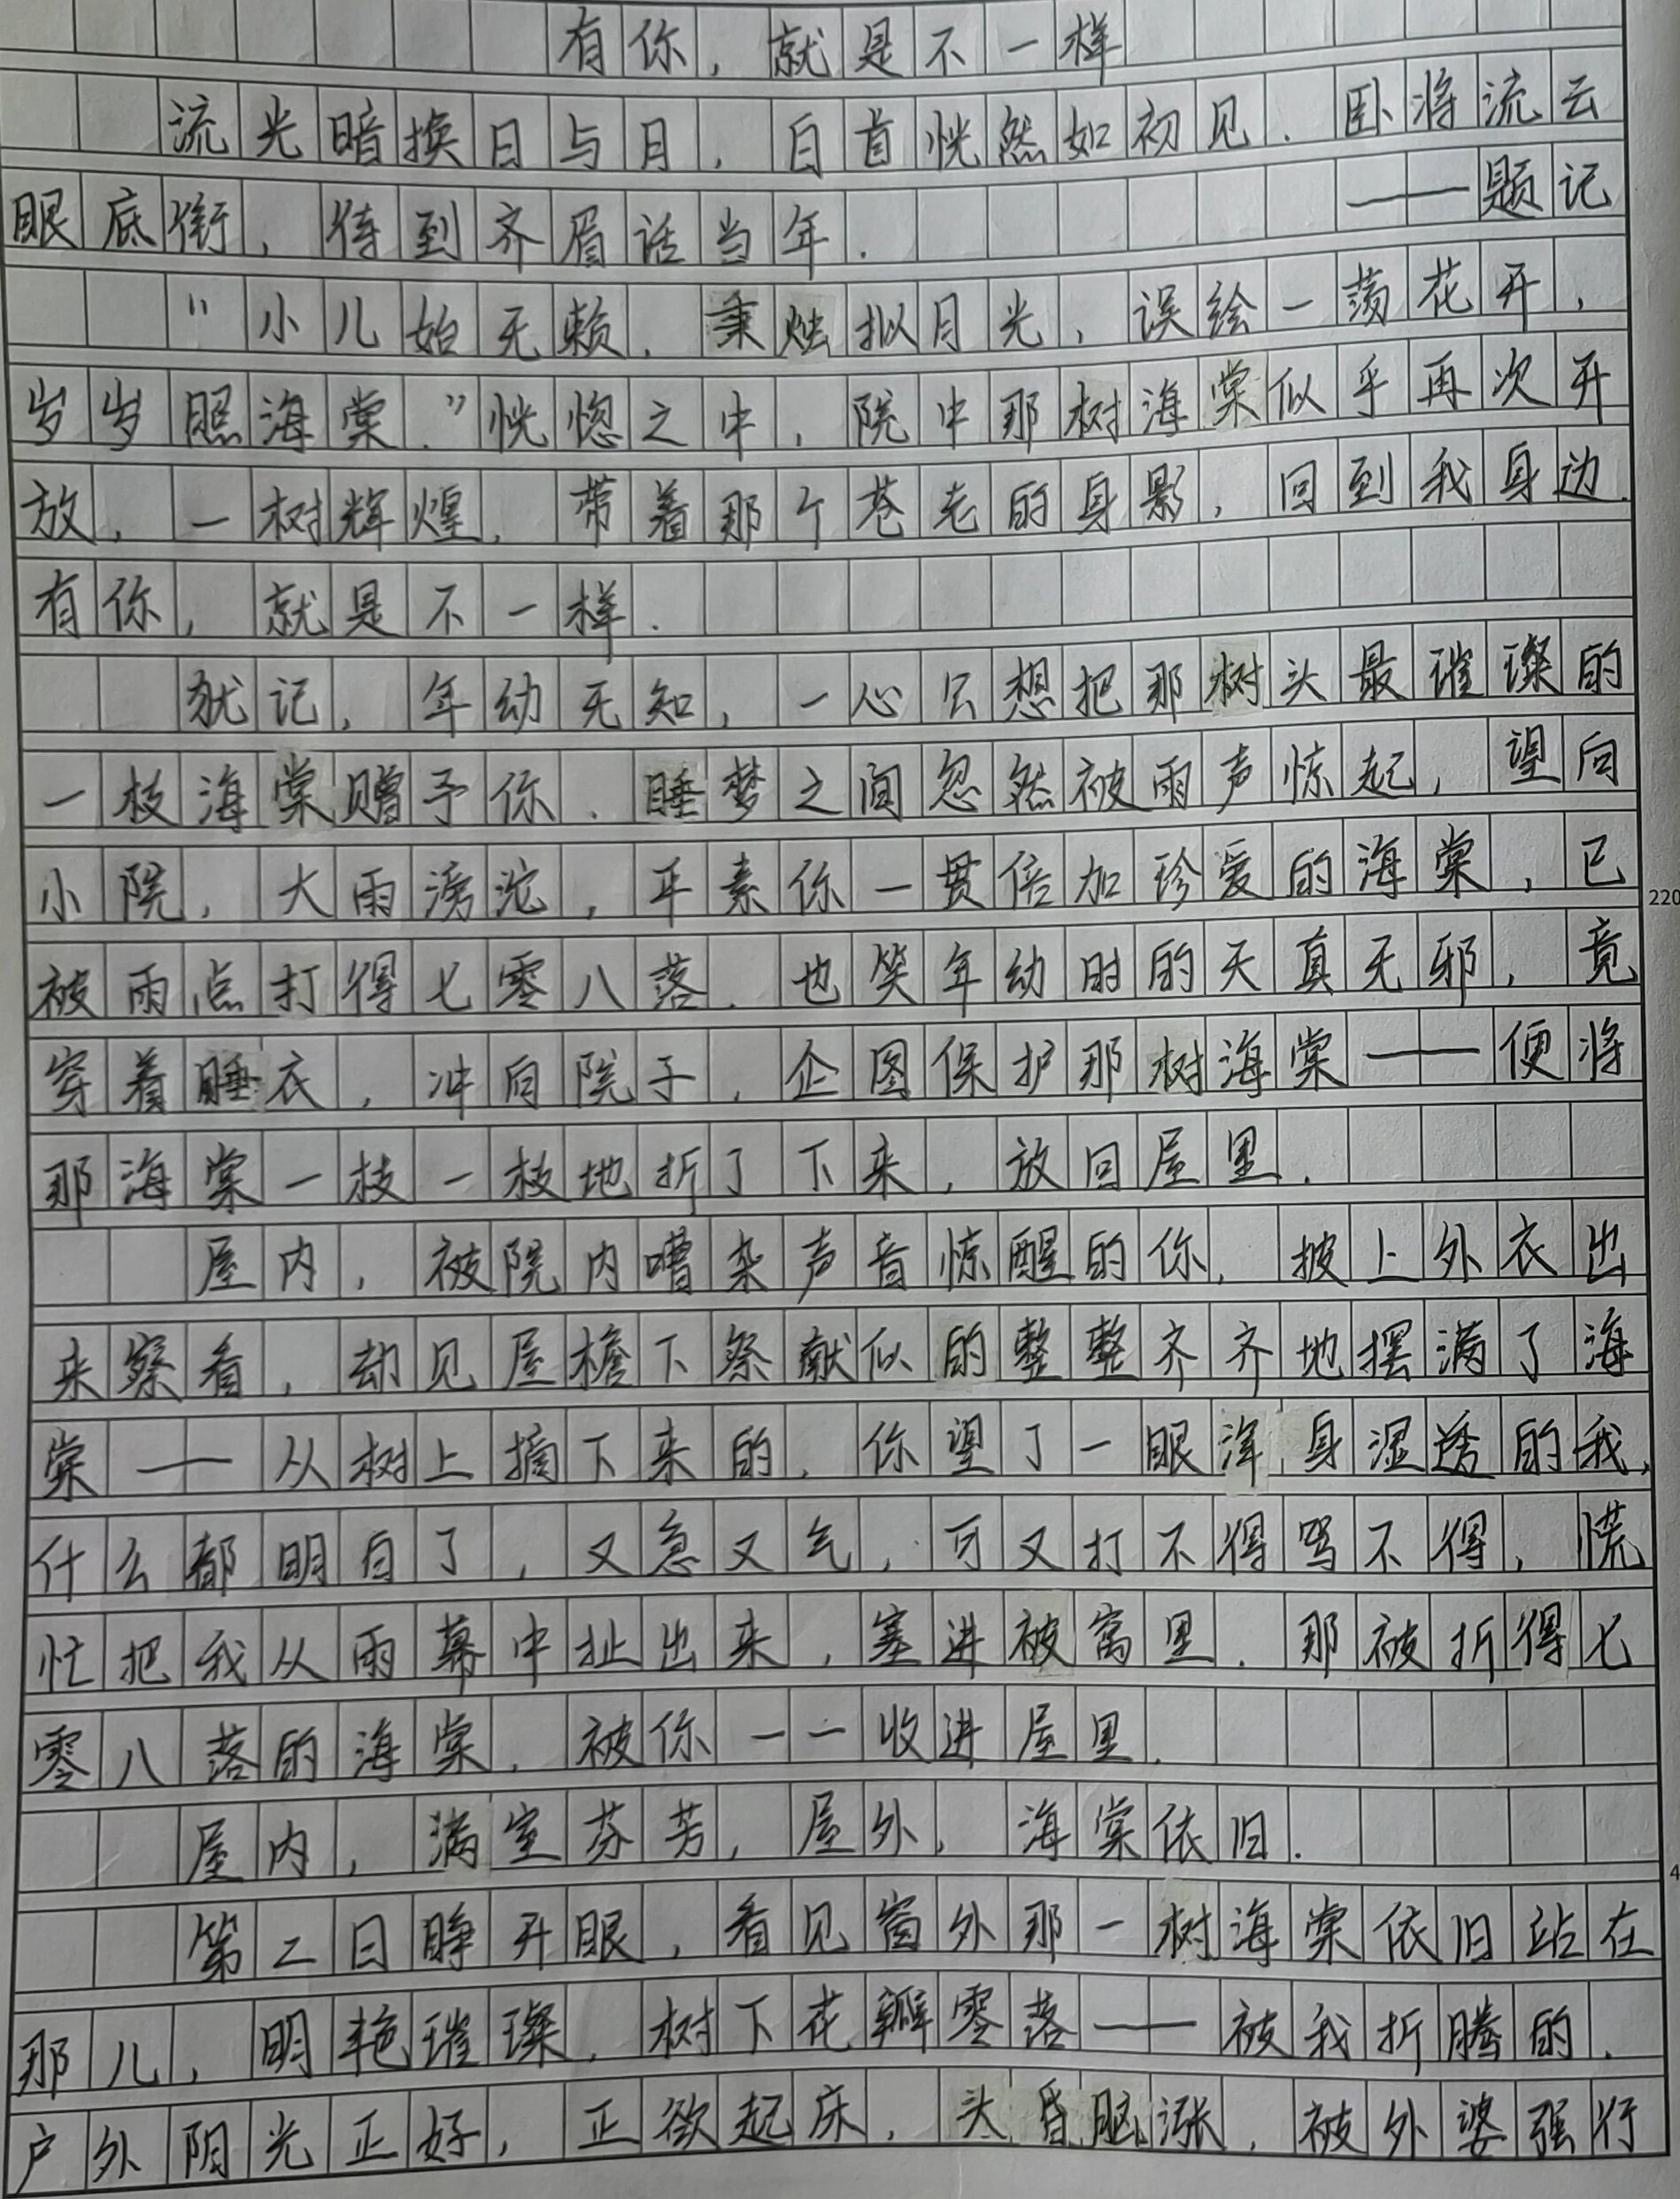 有你，就是不一样
流光暗换日与月，白首恍然如初见．卧将流云
眼底衔，待到齐眉话当年．——题记
"小儿始无赖，秉烛拟月光，误绘一蒻花开，
岁岁照海棠．"恍惚之中，院中那树海棠似乎再次开
放，一树辉煌，带着那个苍老的身影，回到我身边．
有你，就是不一样．
犹记，年幼无知，一心只想把那树头最璀璨的
一枝海棠赠予你．睡梦之间忽然被雨声惊起，望向
小院，大雨滂沱，平素你一贯倍加珍爱的海棠，已
被雨点打得七零八落．也笑年幼时的天真无邪，竟
穿着睡衣，冲向院子，企图保护那树海棠——便将
那海棠一枝一枝地折了下来，放回屋里．
屋内，被院内嘈杂声音惊醒的你，披上外衣出
来察看，却见屋檐下祭献似的整整齐齐地摆满了海
棠——从树上摘下来的，你望了一眼浑身湿透的我，
什么都明白了，又急又气，可又打不得骂不得，慌
忙把我从雨幕中扯出来，塞进被窝里．那被折得七
零八落的海棠，被你一一收进屋里．
屋内，满室芬芳，屋外，海棠依旧．
第二日睁开眼，看见窗外那一树海棠依旧站在
那儿，明艳璀璨，树下花瓣零落——被我折腾的．
户外阳光正好，正欲起床，头昏脑涨，被外婆强行
220
4